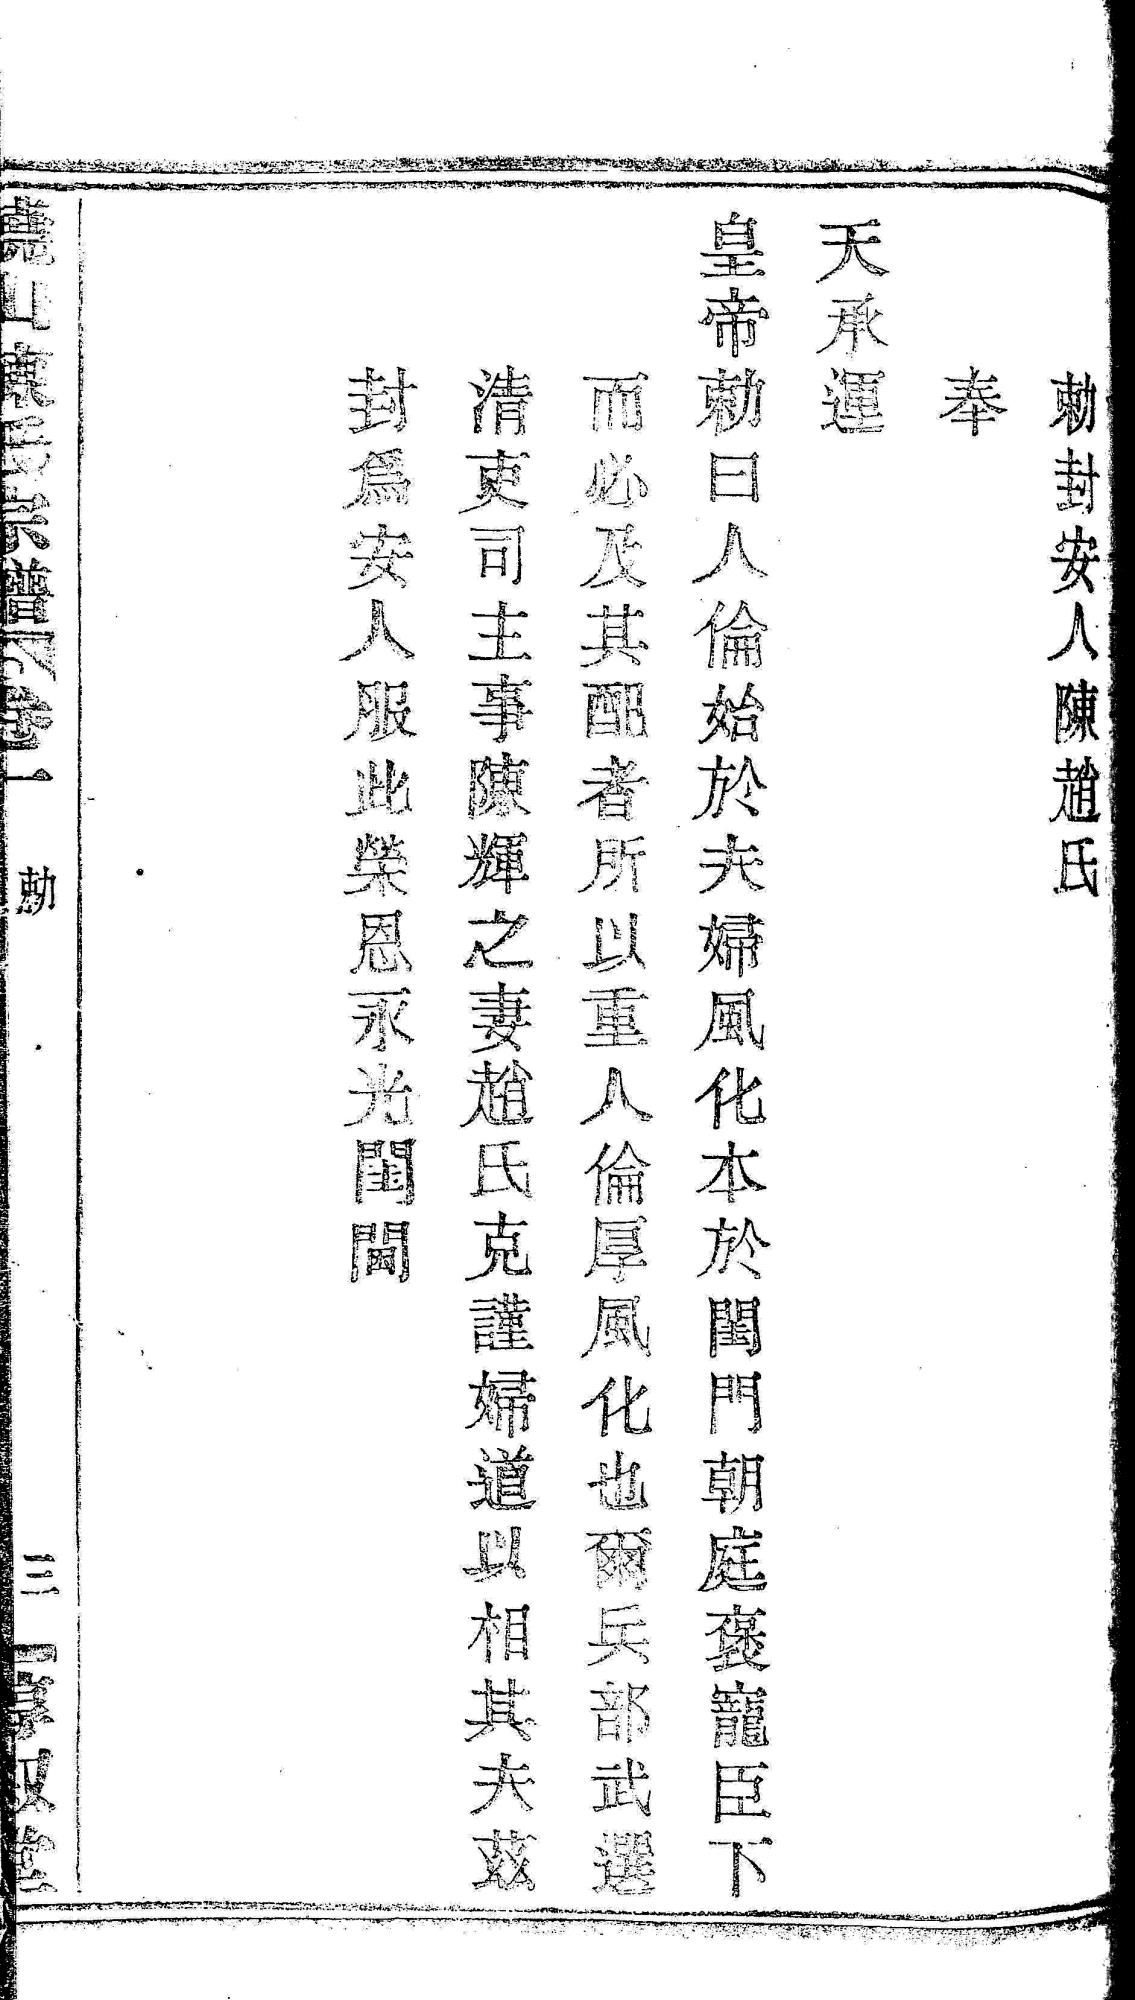 勅封安人陳趙氏
奉
天承運
皇帝勅曰人倫始於夫婦風化本於閨門朝庭褒寵臣下
而必及其配者所以重人倫厚風化也爾兵部武選
清吏司主事陳輝之妻趙氏克謹婦道以相其夫茲
封爲安人服此榮恩永光閨閫
山陳氏宗譜 卷一 勅 三 敘堂